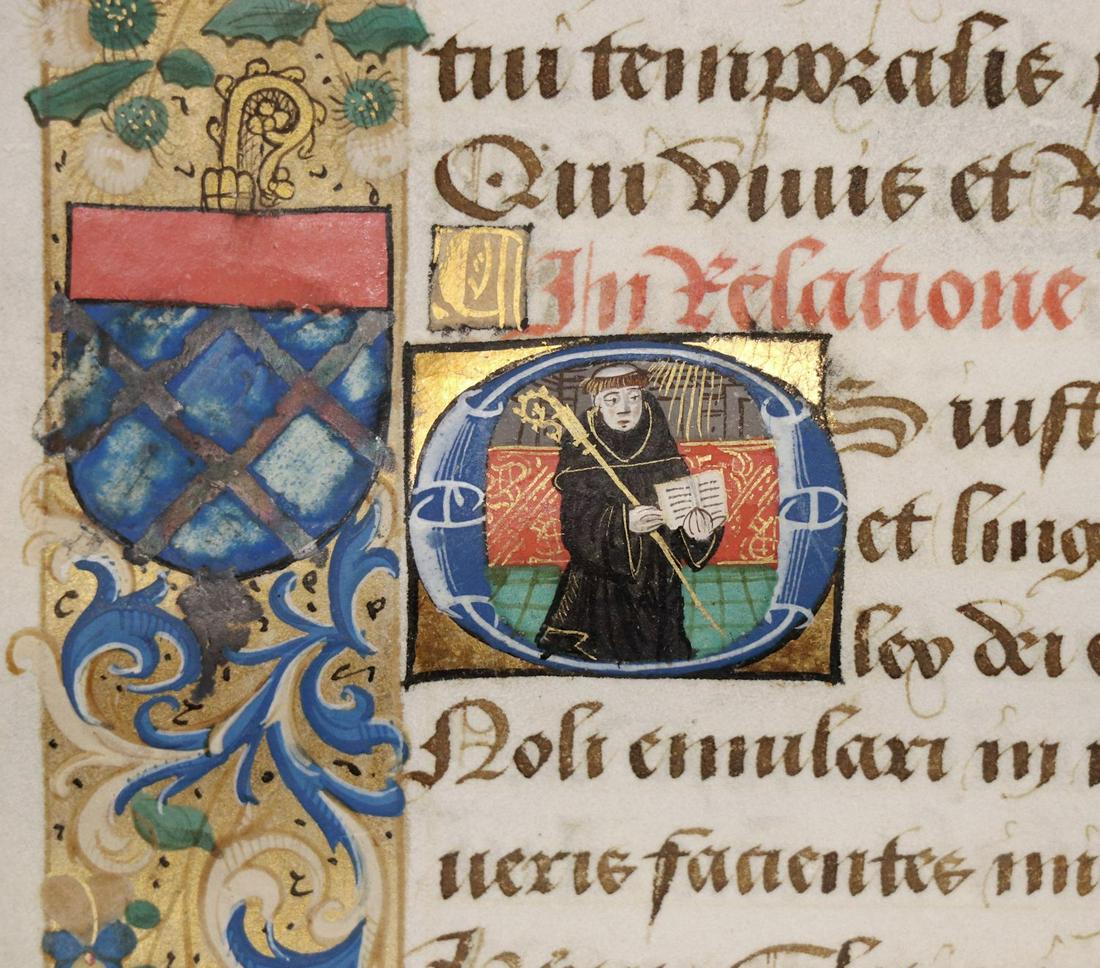 tui temporalis
Qui viuis et
In Relatione
OS iust
et ling
lex dei
Noli emulari in
ueris facientes ini